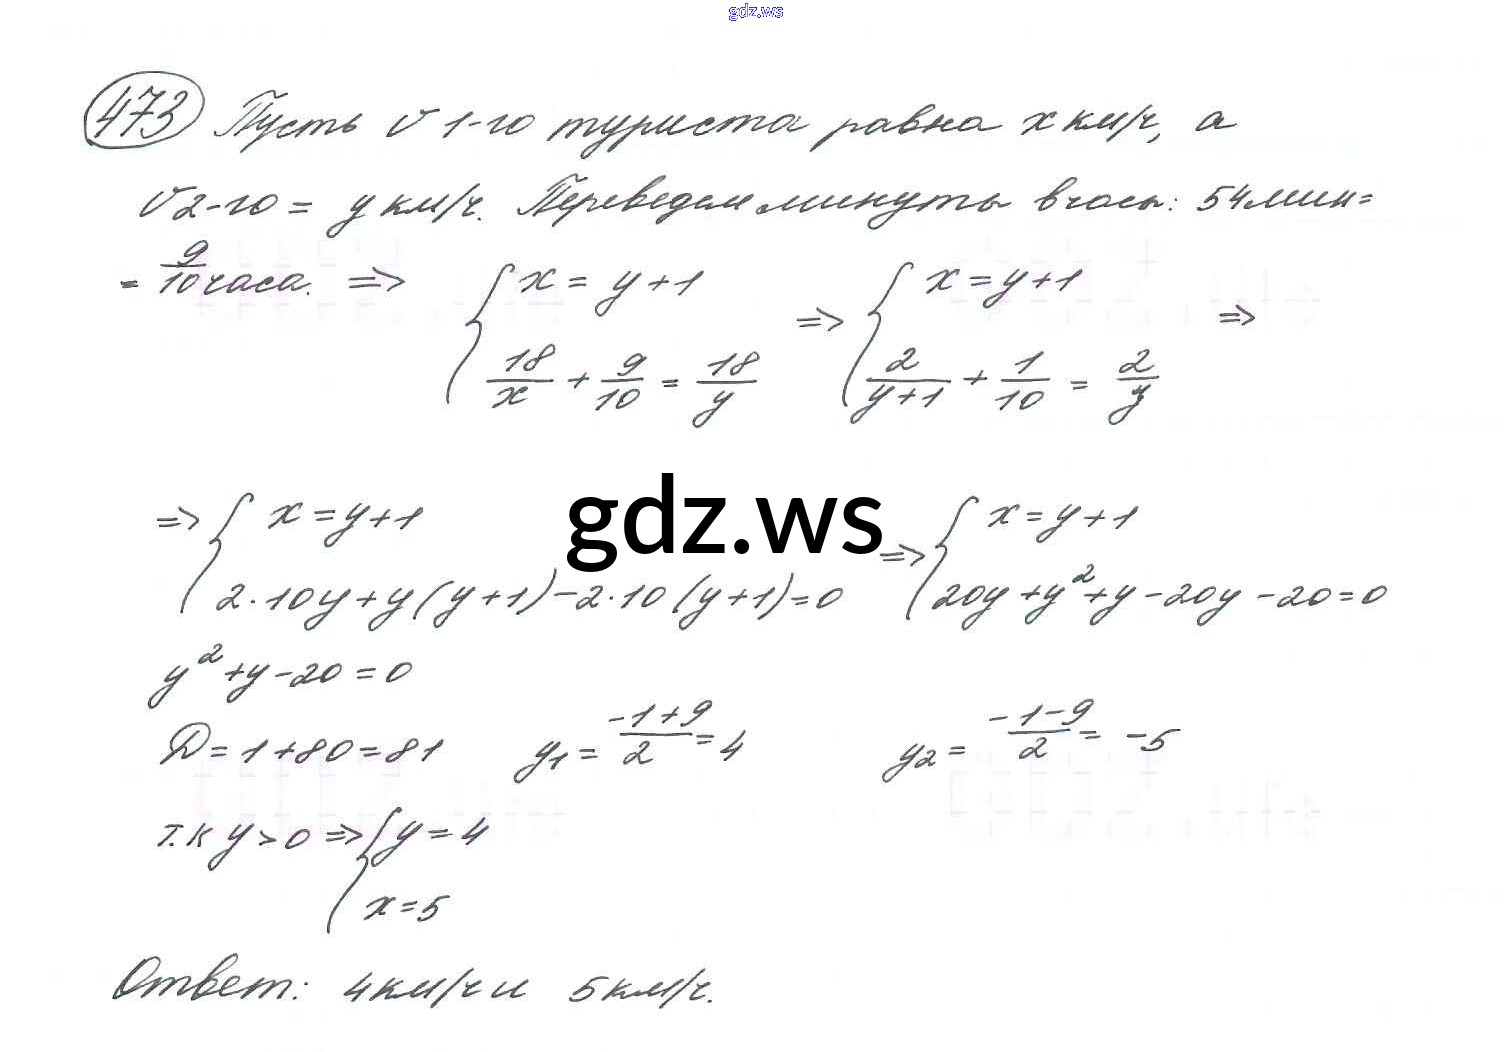 gdz.ws
473 Пусть v 1-го туриста равна x км/ч, а
v 2-го = y км/ч. Переведем минуты в часы: 54 мин =
= 9/10 часа. => { x = y+1 ; 18/x + 9/10 = 18/y => { x = y+1 ; 2/(y+1) + 1/10 = 2/y =>
=> { x = y+1 ; 2·10y + y(y+1) - 2·10(y+1) = 0 => { x = y+1 ; 20y + y² + y - 20y - 20 = 0
gdz.ws
y² + y - 20 = 0
D = 1 + 80 = 81 y₁ = (-1+9)/2 = 4 y₂ = (-1-9)/2 = -5
т.к y > 0 => { y = 4
x = 5
Ответ: 4 км/ч и 5 км/ч.